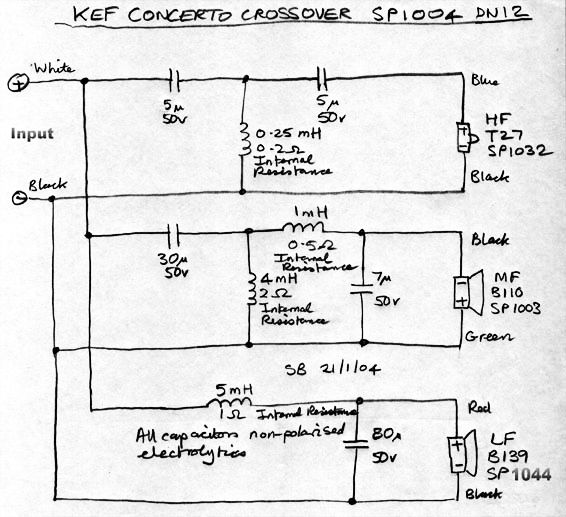 KEF CONCERTO CROSSOVER SP1004 DN12
White
5µ
50v
5µ
50v
Blue
Input
0.25 mH
0.2Ω
Internal
Resistance
HF
T27
SP1032
Black
Black
30µ
50v
1mH
0.5Ω
Internal
Resistance
Black
4mH
2Ω
Internal
Resistance
7µ
50v
MF
B110
SP1003
Green
SB 21/1/04
5mH
1Ω Internal Resistance
Red
All capacitors non-polarised
electrolytics
80µ
50v
LF
B139
SP1044
Black